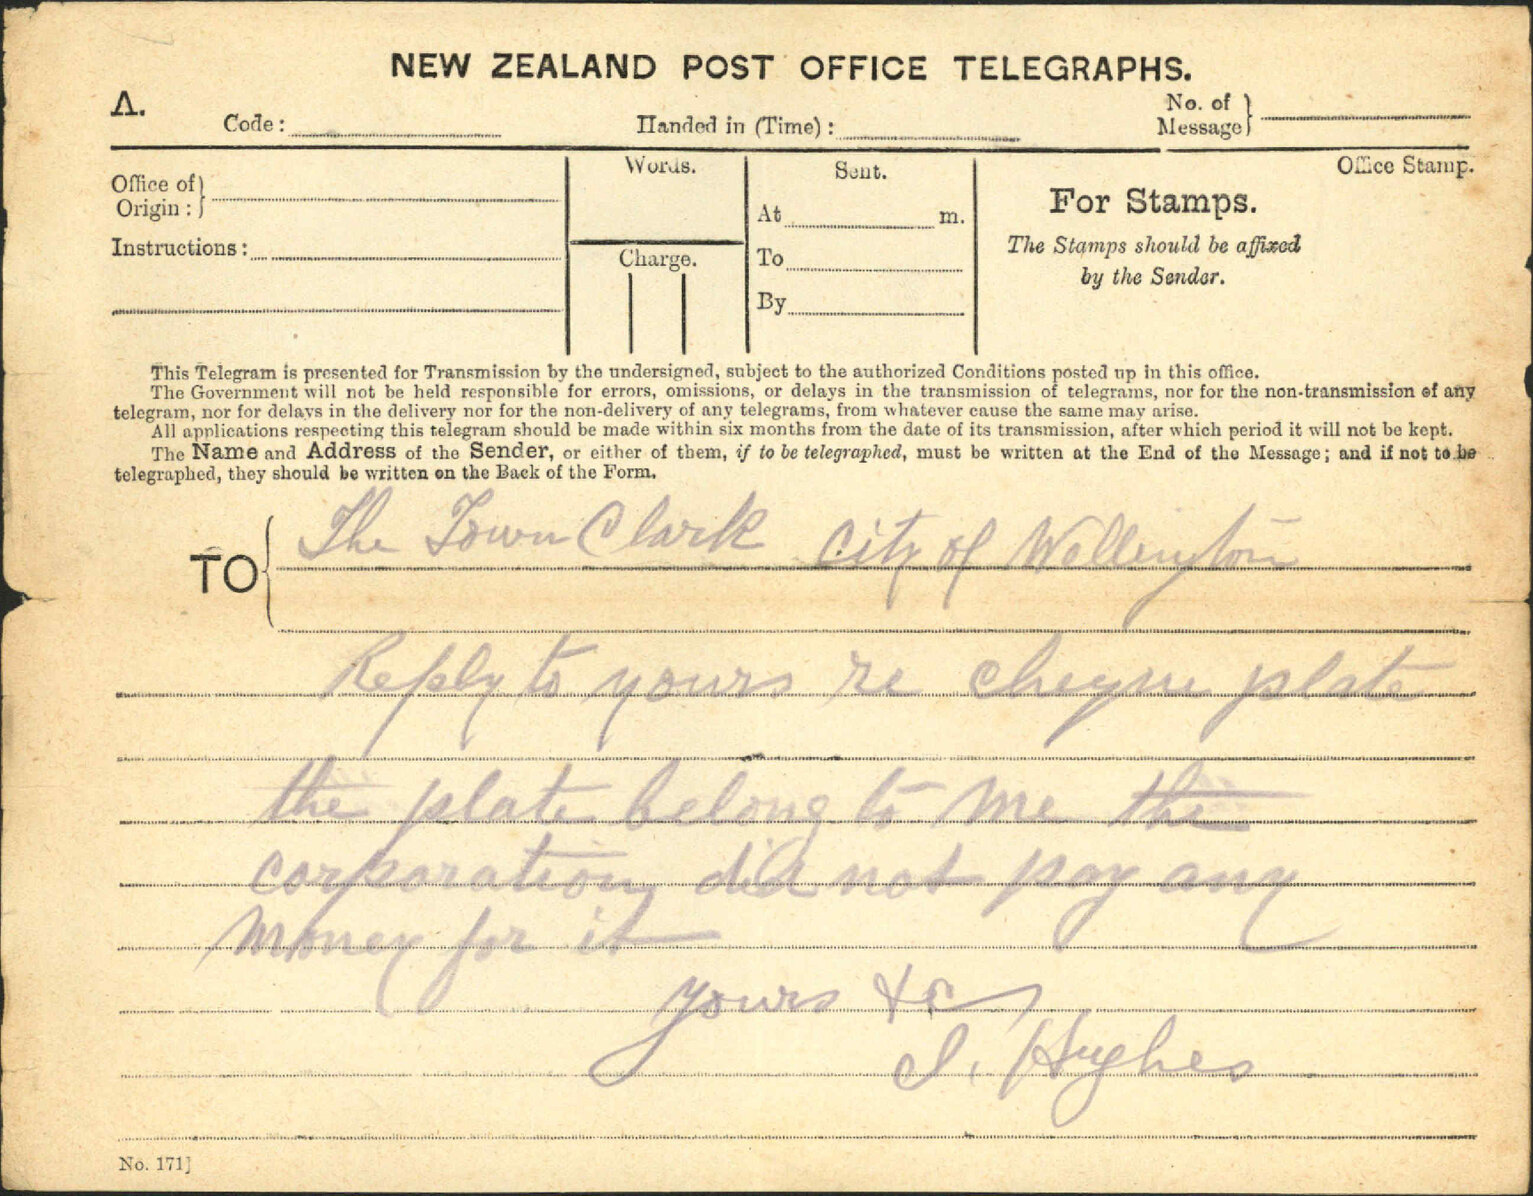 NEW ZEALAND POST OFFICE TELEGRAPHS.
A.
Code:
Handed in (Time):
No. of Message}
Office of Origin:}
Instructions:
Words.
Charge.
Sent.
At m.
To
By
Office Stamp.
For Stamps.
The Stamps should be affixed
by the Sender.
This Telegram is presented for Transmission by the undersigned, subject to the authorized Conditions posted up in this office.
The Government will not be held responsible for errors, omissions, or delays in the transmission of telegrams, nor for the non-transmission of any
telegram, nor for delays in the delivery nor for the non-delivery of any telegrams, from whatever cause the same may arise.
All applications respecting this telegram should be made within six months from the date of its transmission, after which period it will not be kept.
The Name and Address of the Sender, or either of them, if to be telegraphed, must be written at the End of the Message; and if not to be
telegraphed, they should be written on the Back of the Form.
TO { The Town Clark City of Wellington
Reply to yours re cheque plate
the plate belong to me the
corporation did not pay any
money for it
yours &c
I. Hughes
No. 171]